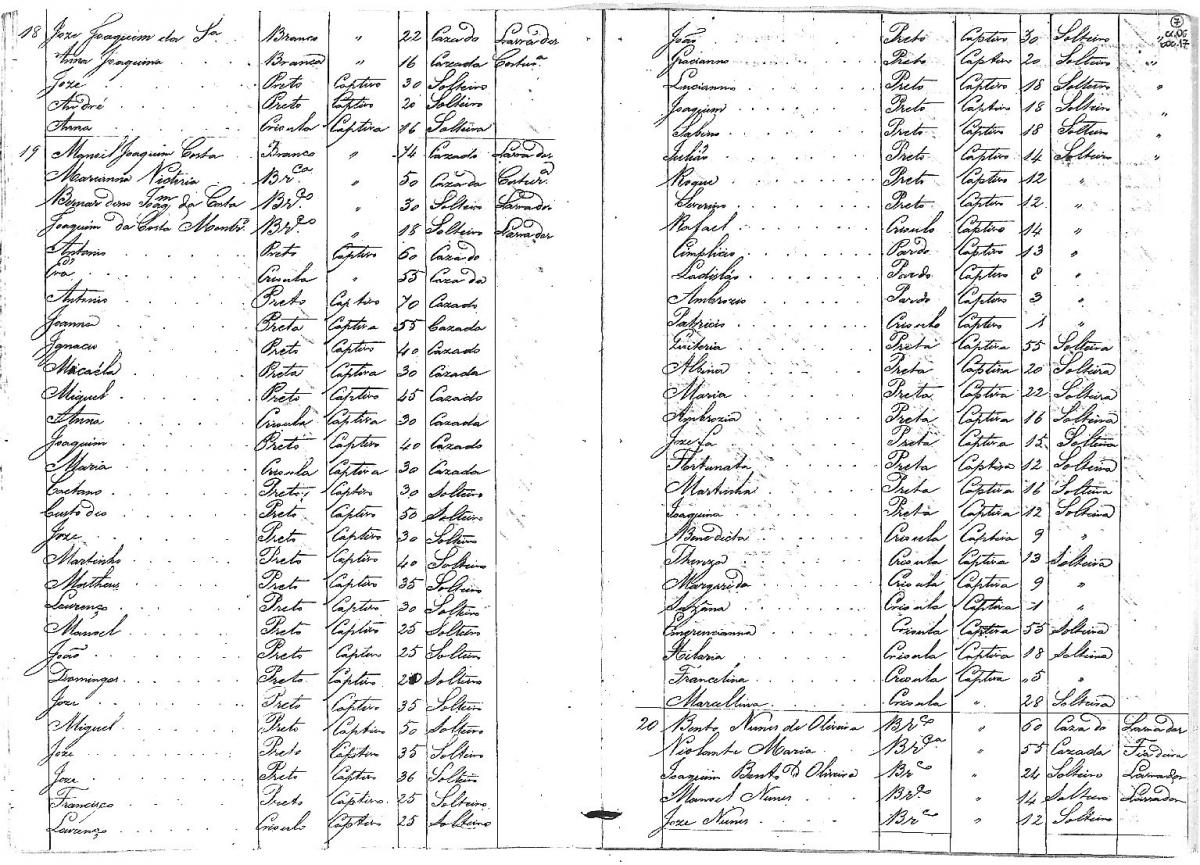 18 Joze Joaquim da Sa Branco " 22 Cazado Lavrador
Anna Joaquina Branca " 16 Cazada Costur.a
Joze Preto Captivo 30 Solteiro
André Preto Captivo 20 Solteiro
Anna Crioula Captiva 16 Solteira
19 Manoel Joaquim Costa Branco " 74 Cazado Lavrador
Marianna Victoria Br.ca " 50 Cazada Costur.a
Bernardino Joaq.m da Costa Br.co " 30 Solteiro Lavrador
Joaquim da Costa Br.co " 18 Solteiro Lavrador
Antonio Preto Captivo 60 Cazado
Eva Crioula " 55 Cazada
Antonio Preto Captivo 70 Cazado
Joanna Preta Captiva 55 Cazada
Ignacio Preto Captivo 40 Cazado
Macaéla Preta Captiva 30 Cazada
Miguel Preto Captivo 45 Cazado
Anna Crioula Captiva 30 Cazada
Joaquim Preto Captivo 40 Cazado
Maria Crioula Captiva 30 Cazada
Caetano Preto Captivo 30 Solteiro
Custodio Preto Captivo 50 Solteiro
Joze Preto Captivo 30 Solteiro
Martinho Preto Captivo 40 Solteiro
Matheus Preto Captivo 35 Solteiro
Lourenço Preto Captivo 30 Solteiro
Manoel Preto Captivo 25 Solteiro
João Preto Captivo 25 Solteiro
Domingos Preto Captivo Solteiro
Joze Preto Captivo 35 Solteiro
Miguel Preto Captivo 50 Solteiro
Joze Preto Captivo 35 Solteiro
Joze Preto Captivo 36 Solteiro
Francisco Preto Captivo 25 Solteiro
Lourenço Crioulo Captivo 25 Solteiro
7
João Preto Captivo 30 Solteiro "
Gracianno Preto Captivo 20 Solteiro "
Lucianno Preto Captivo 18 Solteiro "
Joaquim Preto Captivo 18 Solteiro
Sabino Preto Captivo 18 Solteiro "
Julião Preto Captivo 14 Solteiro "
Roque Preto Captivo 12 "
Severino Preto Captivo 12 "
Rafael Crioulo Captivo 14 "
Cimplicio Pardo Captivo 13 "
Ladisláo Pardo Captivo 8 "
Ambrozio Pardo Captivo 3 "
Patricio Crioulo Captivo 1 "
Quiteria Preta Captiva 55 Solteira
Albina Preta Captiva 20 Solteira
Maria Preta Captiva 22 Solteira
Ambrozia Preta Captiva 16 Solteira
Jozefa Preta Captiva 15 Solteira
Fortunata Preta Captiva 12 Solteira
Martinha Preta Captiva 16 Solteira
Joaquina Preta Captiva 12 Solteira
Benedicta Crioula Captiva 9 "
Thereza Crioula Captiva 13 Solteira
Margarida Crioula Captiva 9 "
Suzana Crioula Captiva 1 "
Emerencianna Crioula Captiva 55 Solteira
Hilaria Crioula Captiva 18 Solteira
Francelina Crioula Captiva 5 "
Marcellina Crioula " 28 Solteira
20 Bento Nunes de Oliveira Br.co " 60 Cazado Lavrador
Violante Maria Br.ca " 55 Cazada Fiadeira
Joaquim Bento d'Oliveira Br.co " 24 Solteiro Lavrador
Manoel Nunes Br.co " 14 Solteiro Lavrador
Joze Nunes Br.co " 12 Solteiro